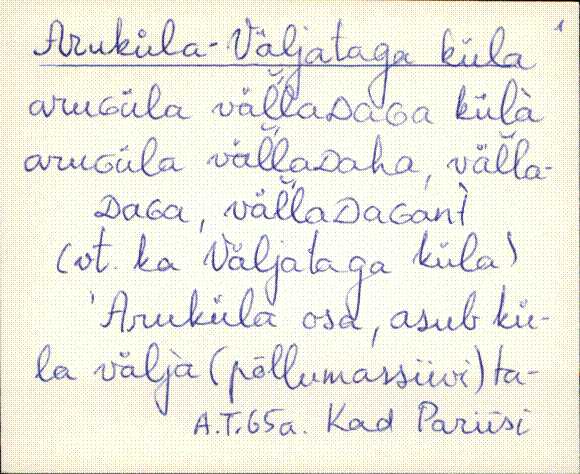 1
Aruküla-Väljataga küla
aruGüla vällaDaGa külà
aruGüla vällaDaha, välla-
DaGa, vällaDaGant
(vt. ka Väljataga küla)
'Aruküla osa, asub kü-
la välja (põllumassiivi) ta-
A.T. 65a. Kad Pariisi